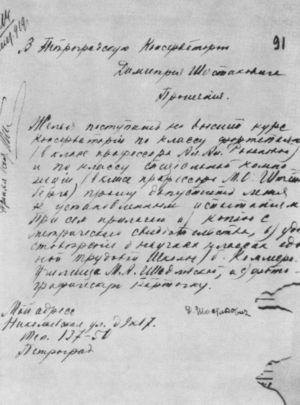 91
В Петроградскую Консерваторию
Димитрия Шостаковича
Прошение.
Желая поступить на высший курс
консерватории по классу фортепиано
(в класс профессора
и по классу специальной компо
зиции (в класс профессора М. О. Штейн
берга) прошу допустить меня
к установленным испытаниям
При сем прилагаю а) копию с
метрического свидетельства, б) удо
стоверение о научн
ной трудовой Школы (б. Коммер.
Училища М. А. Шидловской, и в) фото
графическую карточку.
Мой адрес
Николаевская ул. д. 9 кв. 7.
Тел. 137-50
Петроград
Д. Шостакович